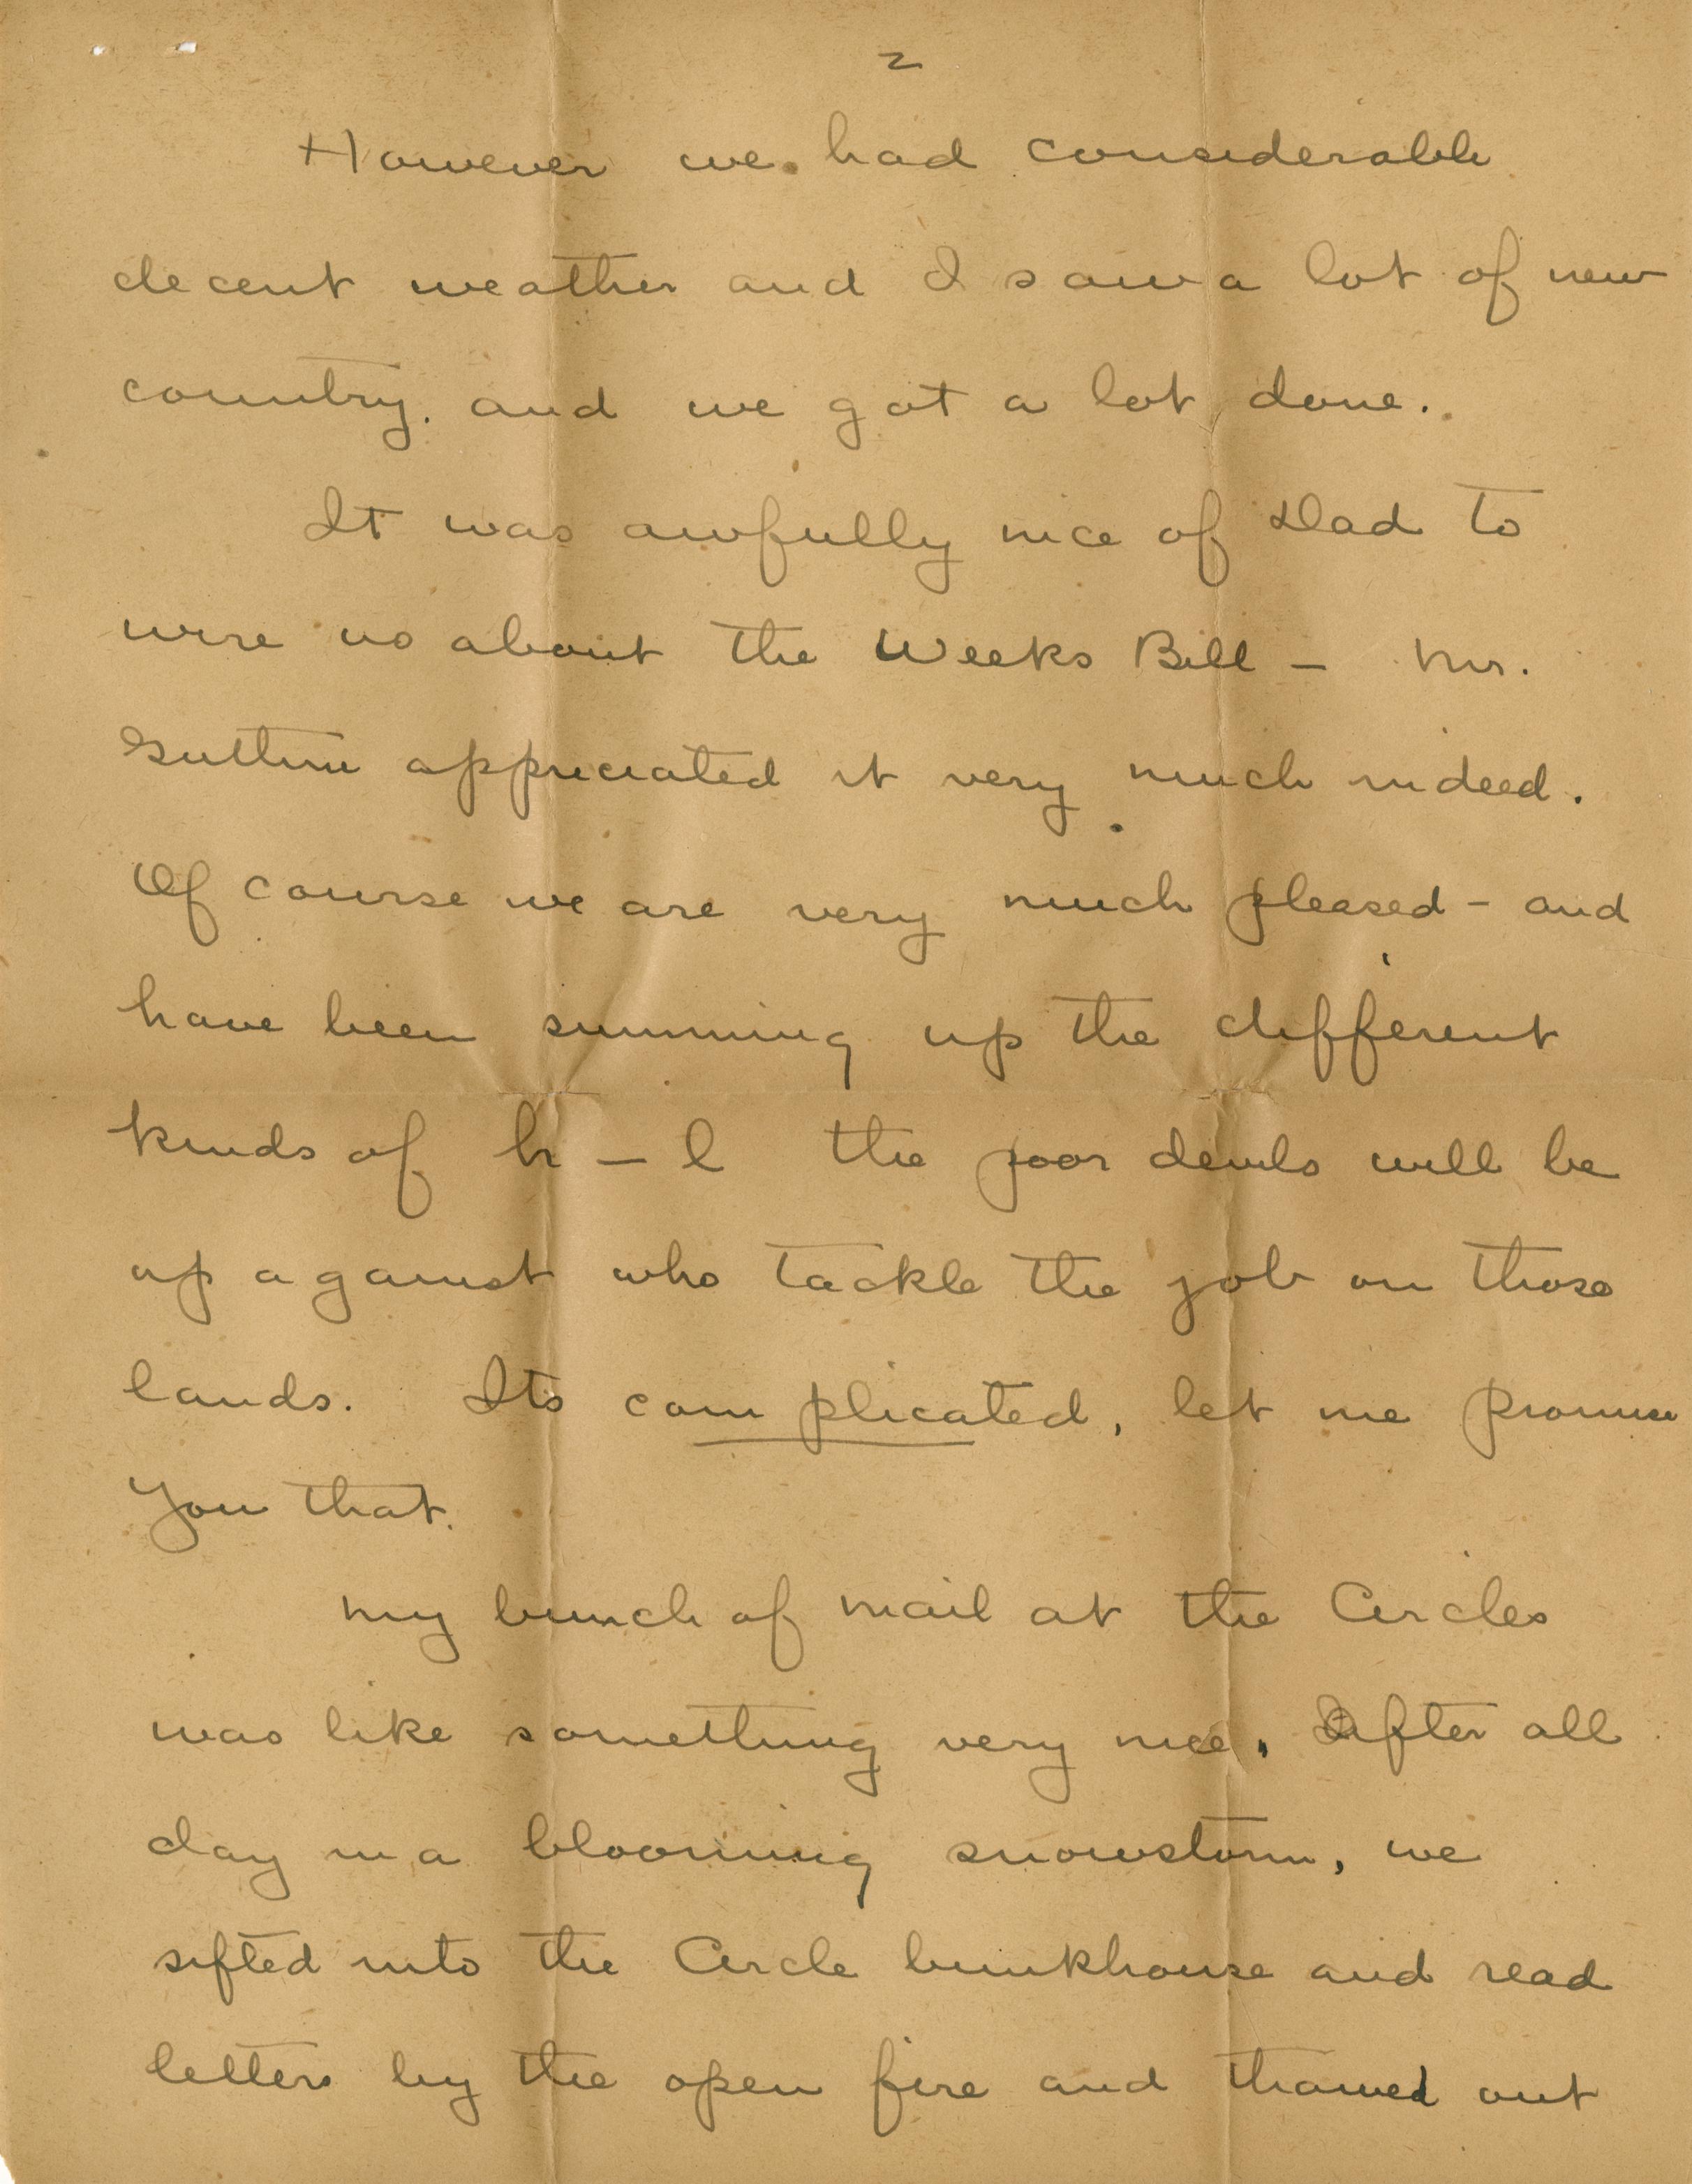 2
However we had considerable
decent weather and I saw a lot of new
country. and we got a lot done.
It was awfully nice of Dad to
wire us about the Weeks Bill – Mr.
Guthrie appreciated it very much indeed.
Of course we are very much pleased – and
have been summing up the different
kinds of h – l the poor devils will be
up against who tackle the job on those
lands. Its complicated, let me promise
you that.
My bunch of mail at the Circles
was like something very nice. After all
day in a blooming snowstorm, we
sifted into the Circle bunkhouse and read
letters by the open fire and thawed out